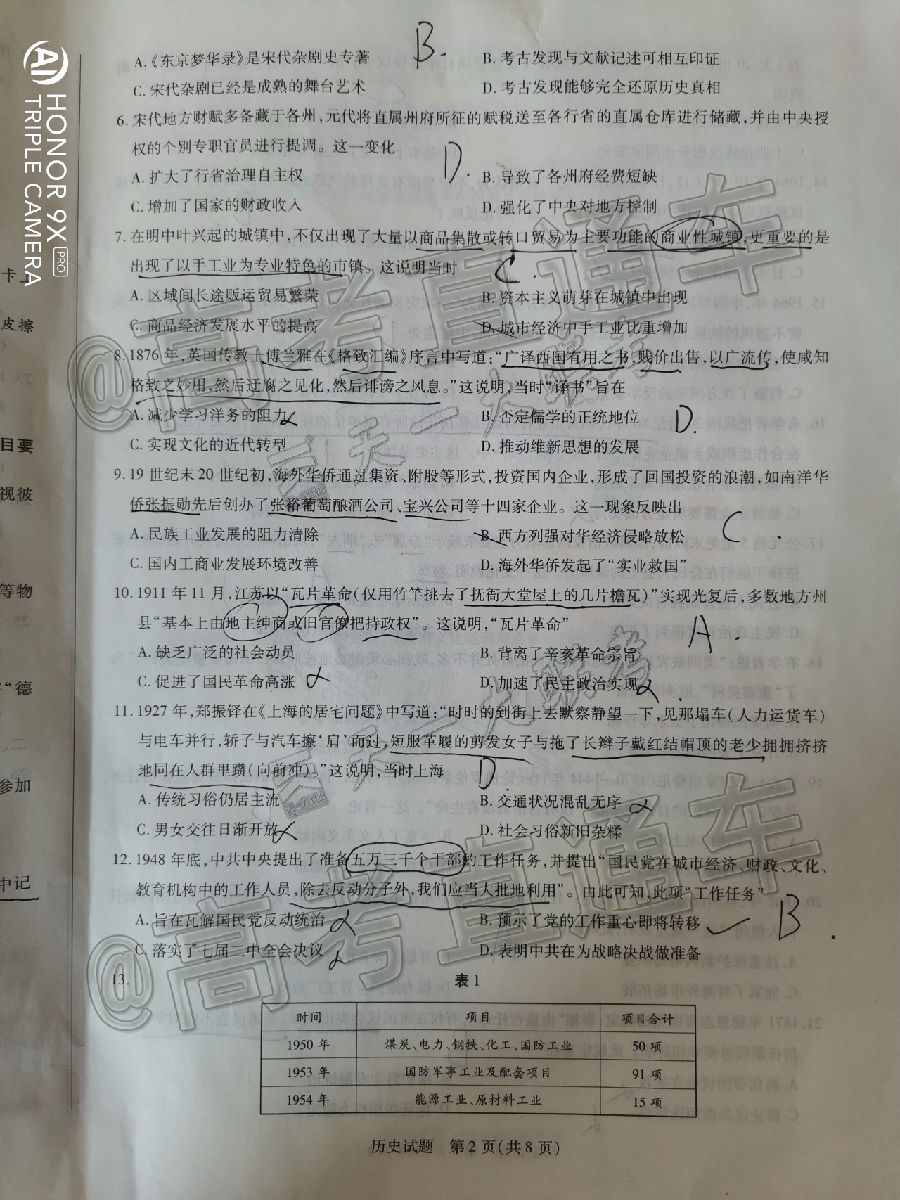 HONOR 9X PRO
TRIPLE CAMERA
A.《东京梦华录》是宋代杂剧史专著
B. 考古发现与文献记述可相互印证
C. 宋代杂剧已经是成熟的舞台艺术
D. 考古发现能够完全还原历史真相
B.
6. 宋代地方财赋多备藏于各州,元代将直属州府所征的赋税送至各行省的直属仓库进行储藏,并由中央授
权的个别专职官员进行提调。这一变化
D.
A. 扩大了行省治理自主权
B. 导致了各州府经费短缺
C. 增加了国家的财政收入
D. 强化了中央对地方控制
7. 在明中叶兴起的城镇中,不仅出现了大量以商品集散或转口贸易为主要功能的商业性城镇,更重要的是
出现了以手工业为专业特色的市镇。这说明当时
C.
A. 区域间长途贩运贸易繁荣
B. 资本主义萌芽在城镇中出现
C. 商品经济发展水平的提高
D. 城市经济中手工业比重增加
8. 1876 年,英国传教士傅兰雅在《格致汇编》序言中写道:“广译西国有用之书,贱价出售,以广流传,使咸知
格致之妙用,然后迂腐之见化,然后诽谤之风息。”这说明,当时“译书”旨在
A. 减少学习洋务的阻力
B. 否定儒学的正统地位
C. 实现文化的近代转型
D. 推动维新思想的发展
D.
9. 19 世纪末 20 世纪初,海外华侨通过集资、附股等形式,投资国内企业,形成了回国投资的浪潮,如南洋华
侨张振勋先后创办了张裕葡萄酿酒公司、宝兴公司等十四家企业。这一现象反映出
A. 民族工业发展的阻力清除
B. 西方列强对华经济侵略放松
C. 国内工商业发展环境改善
D. 海外华侨发起了“实业救国”
C.
10. 1911 年 11 月,江苏以“瓦片革命(仅用竹竿挑去了抚衙大堂屋上的几片檐瓦)”实现光复后,多数地方州
县“基本上由地主绅商或旧官僚把持政权”。这说明,“瓦片革命”
A.
A. 缺乏广泛的社会动员
B. 背离了辛亥革命宗旨
C. 促进了国民革命高涨
D. 加速了民主政治实现
11. 1927 年,郑振铎在《上海的居宅问题》中写道:“时时的到街上去默察静望一下,见那塌车(人力运货车)
与电车并行,轿子与汽车擦‘肩’而过,短服革履的剪发女子与拖了长辫子戴红结帽顶的老少拥拥挤挤
地同在人群里躜(向前冲)。”这说明,当时上海
D
A. 传统习俗仍居主流
B. 交通状况混乱无序
C. 男女交往日渐开放
D. 社会习俗新旧杂糅
12. 1948 年底,中共中央提出了准备五万三千个干部的工作任务,并提出“国民党在城市经济、财政、文化、
教育机构中的工作人员,除去反动分子外,我们应当大批地利用”。由此可知,此项“工作任务”
A. 旨在瓦解国民党反动统治
B. 预示了党的工作重心即将转移
B.
C. 落实了七届二中全会决议
D. 表明中共在为战略决战做准备
13.
表 1
时间 项目 项目合计
1950 年 煤炭、电力、钢铁、化工、国防工业 50 项
1953 年 国防军事工业及配套项目 91 项
1954 年 能源工业、原材料工业 15 项
历史试题 第 2 页(共 8 页)
@高考直通车
天一大联考
天一大联考
@高考直通车
卡上
皮擦
目要
视彼
等物
“德
参加
中记